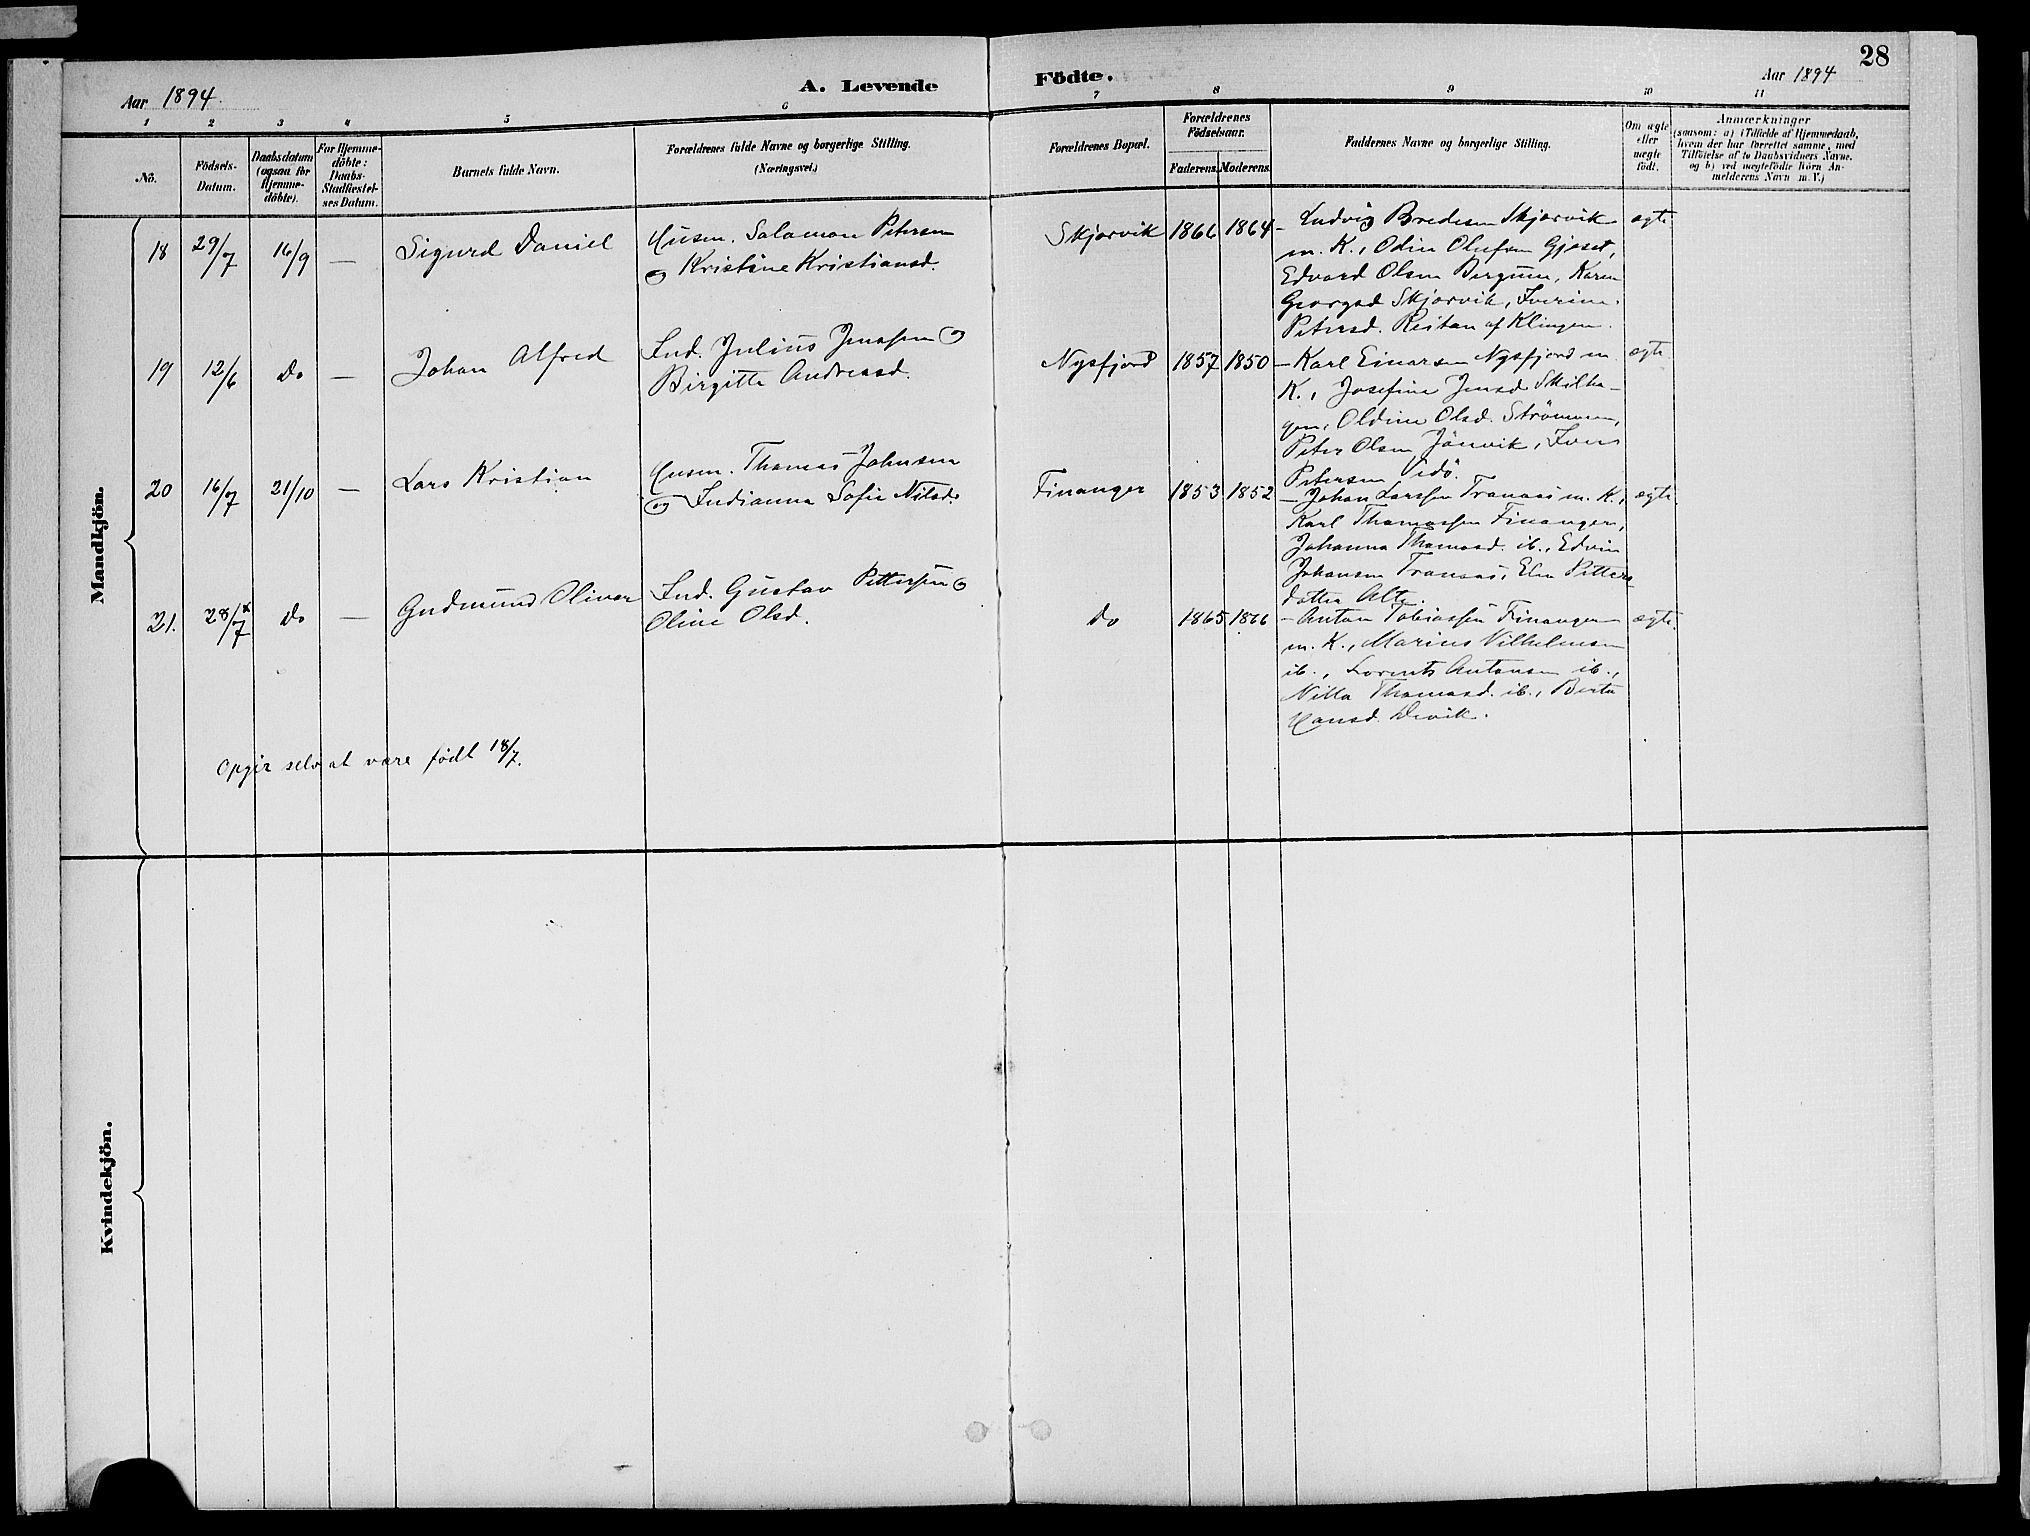 28
Aar 1894.
A. Levende
Födte.
Aar 1894
1 2 3 4 5 6 7 8 9 10 11
No.
Födsels-
Datum.
Daabsdatum
(ogsaa for
Hjemme-
döbte).
For Hjemme-
döbte:
Daabs-
Stadfæstel-
ses Datum.
Barnets fulde Navn.
Forældrenes fulde Navne og borgerlige Stilling.
(Næringsvei.)
Forældrenes Bopæl.
Forældrenes
Födselsaar.
Faderens. Moderens.
Faddernes Navne og borgerlige Stilling.
Om ægte
eller
uægte
födt.
Anmærkninger
(saasom: a) i Tilfælde af Hjemmedaab,
hvem der har forrettet samme, med
Tilföielse af to Daabsvidners Navne.
og b) ved uægtefödte Börn An-
melderens Navn m. V.)
Mandkjön.
18 29/7 16/9 — Sigurd Daniel
Husm. Salamon Petersen
og Kristine Kristiansd.
Skjærvik 1866 1864
- Ludvig Bredesen Skjærvik
m. K., Odin Olufsen Gjøset,
Edvard Olsen Bergum, Karen
Georgsd Skjærvik, Iverine
Petersd. Reitan af Klingen.
ægte
19 12/6 Do — Johan Alfred
Ind. Julius Jenssen og
Birgitte Andreasd.
Nysfjord 1857 1850
- Karl Einarsen Nysfjord m.
K., Josefine Jensd Skilha-
gen, Oldine Olsd. Strömmen,
Peter Olsen Jönvik, Iver
Petersen Vedö.
ægte
20 16/7 21/10 — Lars Kristian
Husm. Thomas Johnsen
og Indianna Sofie Nilsd.
Finanger 1853 1852
- Johan Larssen Tranaas m. K.,
Karl Thomassen Finanger,
Johanna Thomasd. ib., Edvin
Johansen Tranaas, Elen Petters
datter Alte.
ægte.
21. 28/7 x Do — Gudmund Oliver
Ind. Gustav Pettersen og
Oline Olsd.
Do 1865 1866
- Anton Tobiassen Finanger
m. K., Marius Vilhelmsen
ib., Lorents Antonsen ib.,
Nilla Thomasd. ib., Berte
Hansd. Devik.
ægte.
opgir selv at være født 18/7.
Kvindekjön.